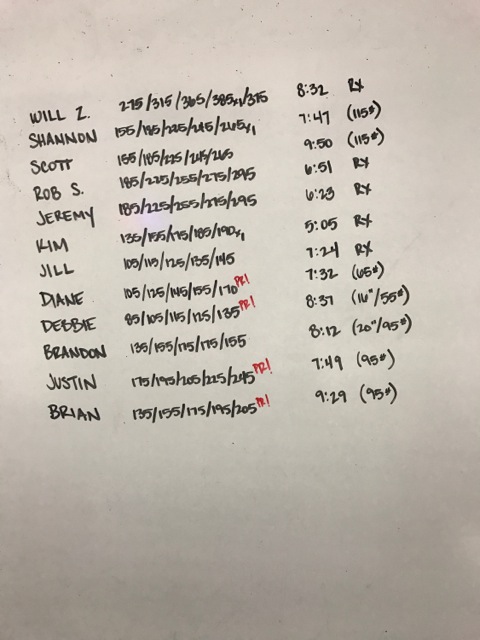 WILL Z. 275/315/365/385x1/375 8:32 RX
SHANNON 155/185/225/245/265x1 7:47 (115#)
SCOTT 155/185/225/245/265 9:50 (115#)
ROB S. 185/225/255/275/295 6:51 RX
JEREMY 185/225/255/275/295 6:23 RX
KIM 135/155/175/185/190x1 5:05 RX
JILL 105/115/125/135/145 7:24 RX
DIANE 105/125/145/155/170 PR! 7:32 (65#)
DEBBIE 85/105/115/125/135 PR! 8:37 (16"/55#)
BRANDON 135/155/175/175/155 8:12 (20"/95#)
JUSTIN 175/195/205/225/245 PR! 7:49 (95#)
BRIAN 135/155/175/195/205 PR! 9:29 (95#)